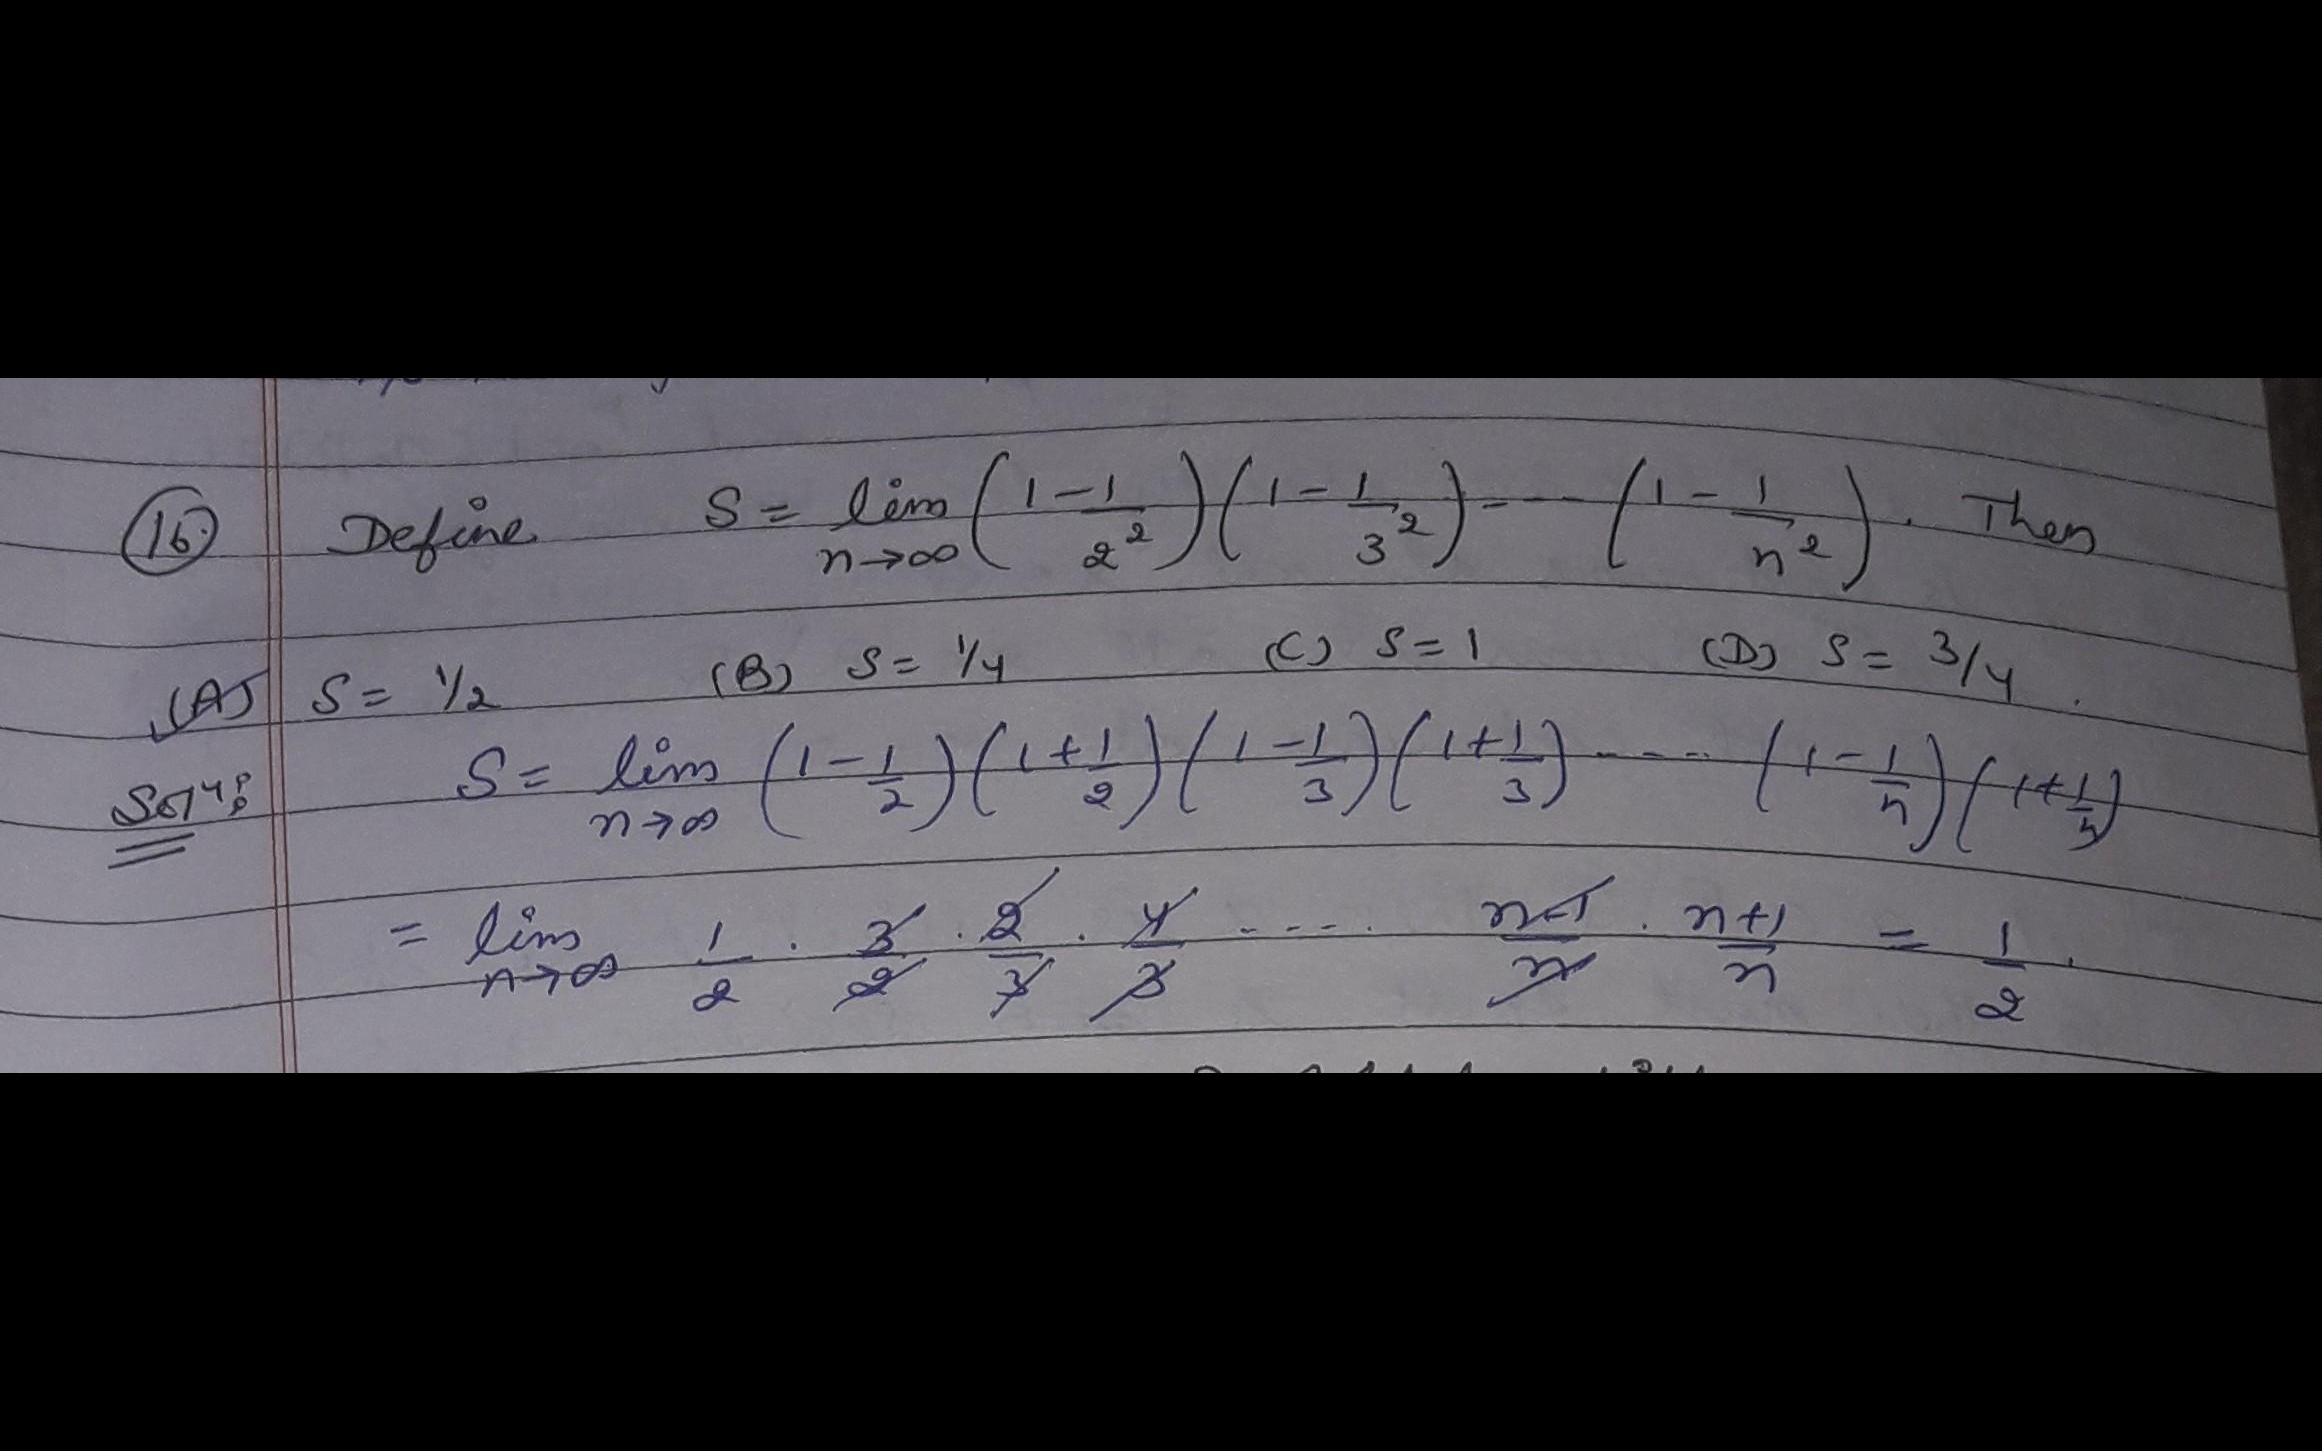 (16.) Define S = lim n→∞ (1 - 1/2²)(1 - 1/3²) - - - (1 - 1/n²). Then
(A) S = 1/2 (B) S = 1/4 (C) S = 1 (D) S = 3/4.
Solⁿ: S = lim n→∞ (1 - 1/2)(1 + 1/2)(1 - 1/3)(1 + 1/3) - - - - (1 - 1/n)(1 + 1/n)
= lim n→∞ 1/2 . 3/2 . 2/3 . 4/3 - - - - . n-1/n . n+1/n = 1/2 .